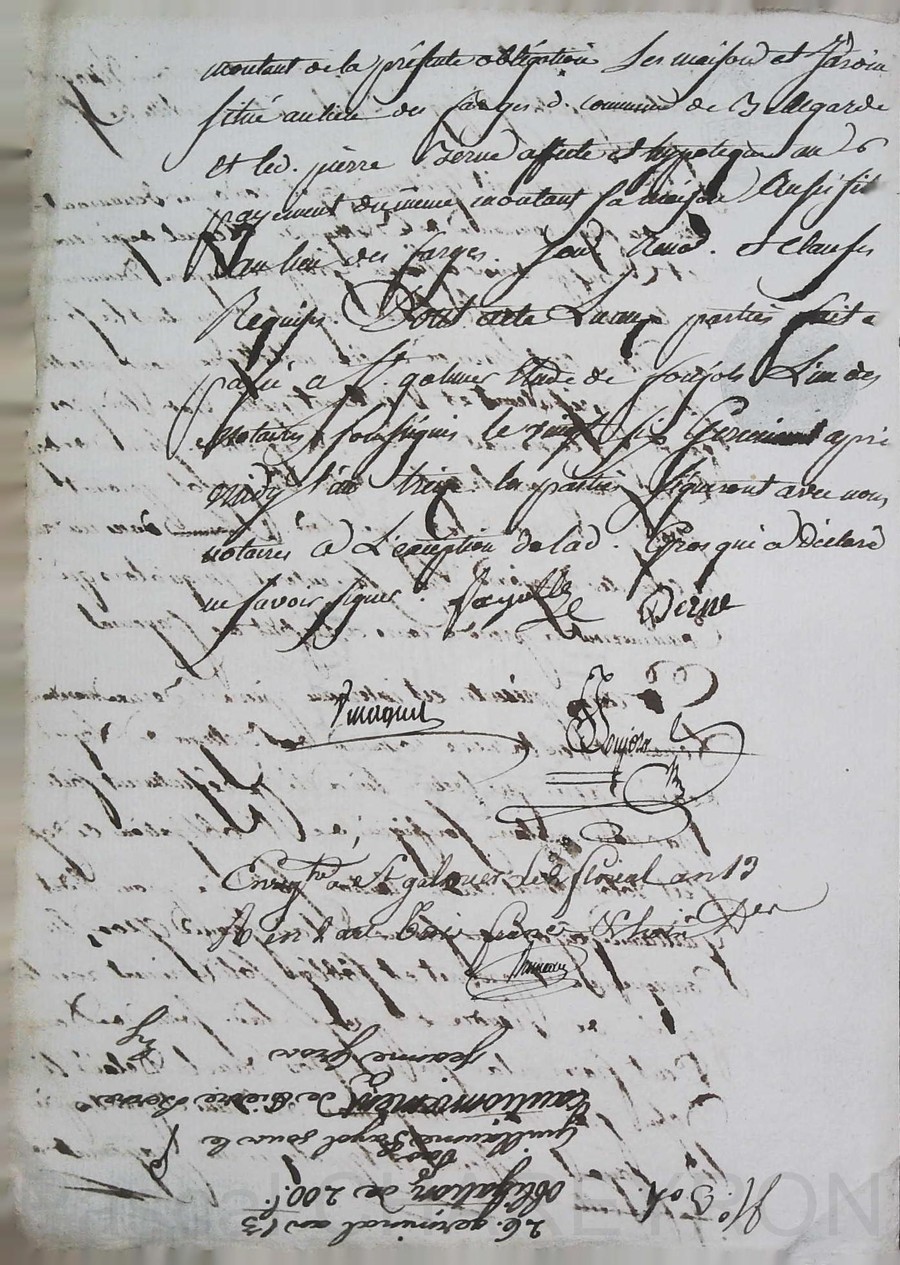 montant de la présente obligation Ses maison et Jardin
situé au lieu des farges d. commune de Bellegarde
et led. pierre Verne affecte et hypoteque au
payement du même montant Sa maison Aussi sise
au lieu des farges. Sous Renon. et clauses
Requises. Dont acte Lu aux parties fait et
passé a St. galmier Etude de Poujols L'un des
Notaires soussignés le vingt six Germinal après
midy l'an treize les parties signeront avec nous
notaires a L'exception de lad. Gros qui a Déclaré
ne savoir signer. Fayolle Verne
Enregtré à St galmier Le floréal an 13
trois francs
26 germinal an 13
obligation de 200 f.
par
Guillaume Fayol sous le
Cautionnement de Pierre Verne
Jeanne Gros
N.o